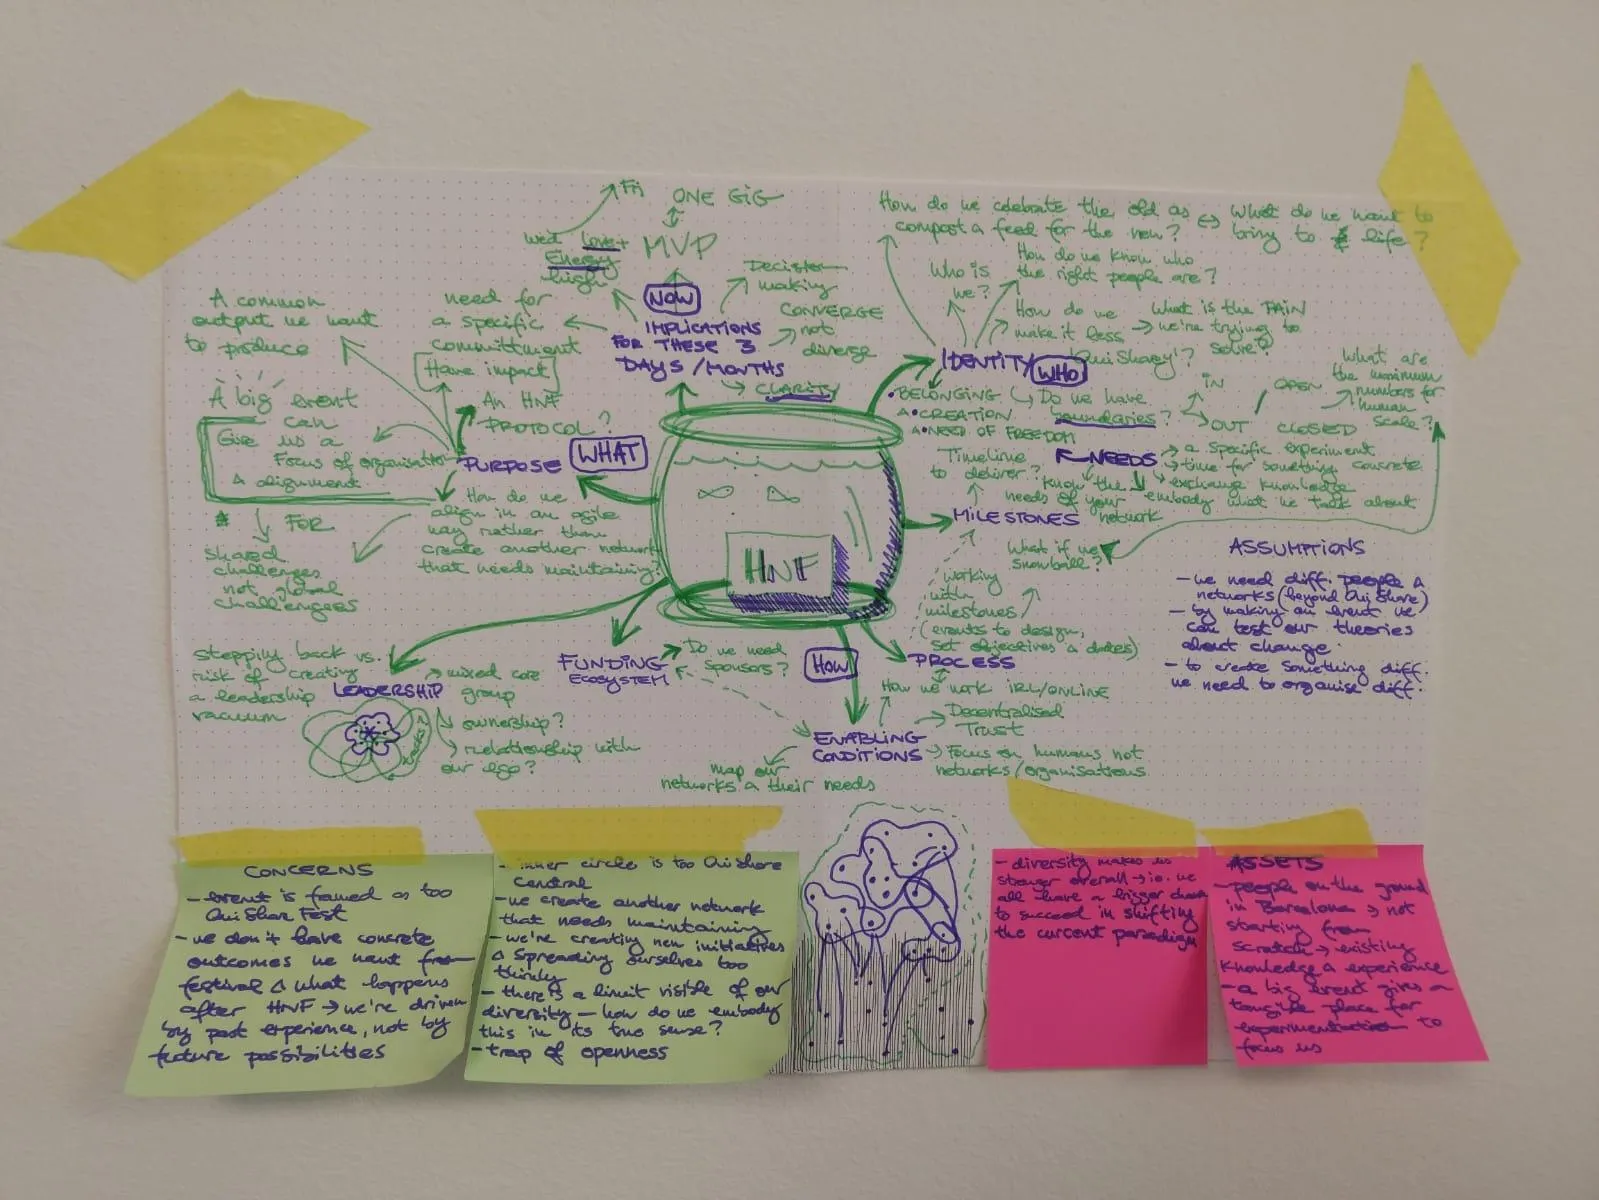 Fri
ONE GIG
Wed Love+
Energy
high
MVP
NOW
IMPLICATIONS
FOR THESE 3
DAYS / MONTHS
CLARITY
Decision
making
CONVERGE
not
diverge
need for
a specific
committment
Have impact
A common
output we want
to produce
A big event
can
Give us a
Focus of organisation
& alignment
An HNF
PROTOCOL?
PURPOSE
WHAT
FOR
shared
challenges
not global
challengees
How do we
align in an agile
way rather than
create another network
that needs maintaining?
How do we celebrate the old as
compost & feed for the new?
What do we want to
bring to life?
Who is
we?
How do we know who
the right people are?
How do we
make it less
'OuiSharey'?
What is the PAIN
we're trying to
solve?
IDENTITY
WHO
• BELONGING
& • CREATION
& • NEED OF FREEDOM
Do we have
boundaries?
IN
OUT
OPEN
CLOSED
What are
the maximum
numbers for
human
scale?
NEEDS
a specific experiment
time for something concrete
exchange knowledge
embody what we talk about
know the
needs of your
network
Timeline
to deliver?
MILESTONES
What if we
snowball?
working
with
milestones
(events to design,
set objectives & dates)
HNF
ASSUMPTIONS
- we need diff. people &
networks (beyond OuiShare)
- by making an event we
can test our theories
about change
- to create something diff.
we need to organise diff.
stepping back vs.
risk of creating
a leadership
vacuum
LEADERSHIP
mixed core
group
ownership?
relationship with
our ego?
FUNDING
ECOSYSTEM
Do we need
sponsors?
HOW
PROCESS
How we work IRL/ONLINE
ENABLING
CONDITIONS
Decentralised
Trust
Focus on humans not
networks/organisations
map our
networks & their needs
CONCERNS
- event is framed as too
OuiShare Fest
- we don't have concrete
outcomes we want from
festival & what happens
after HNF → we're driven
by past experience, not by
future possibilities
- inner circle is too OuiShare
central
- we create another network
that needs maintaining
- we're creating new initiatives
& spreading ourselves too
thinly
- there's a limit visible of our
diversity – how do we embody
this in its true sense?
- trap of openness
- diversity makes us
stronger overall → i.e. we
all have a bigger chance
to succeed in shifting
the current paradigm
ASSETS
- people on the ground
in Barcelona → not
starting from
scratch → existing
knowledge & experience
- a big event gives a
tangible place for
experimentation to
focus us